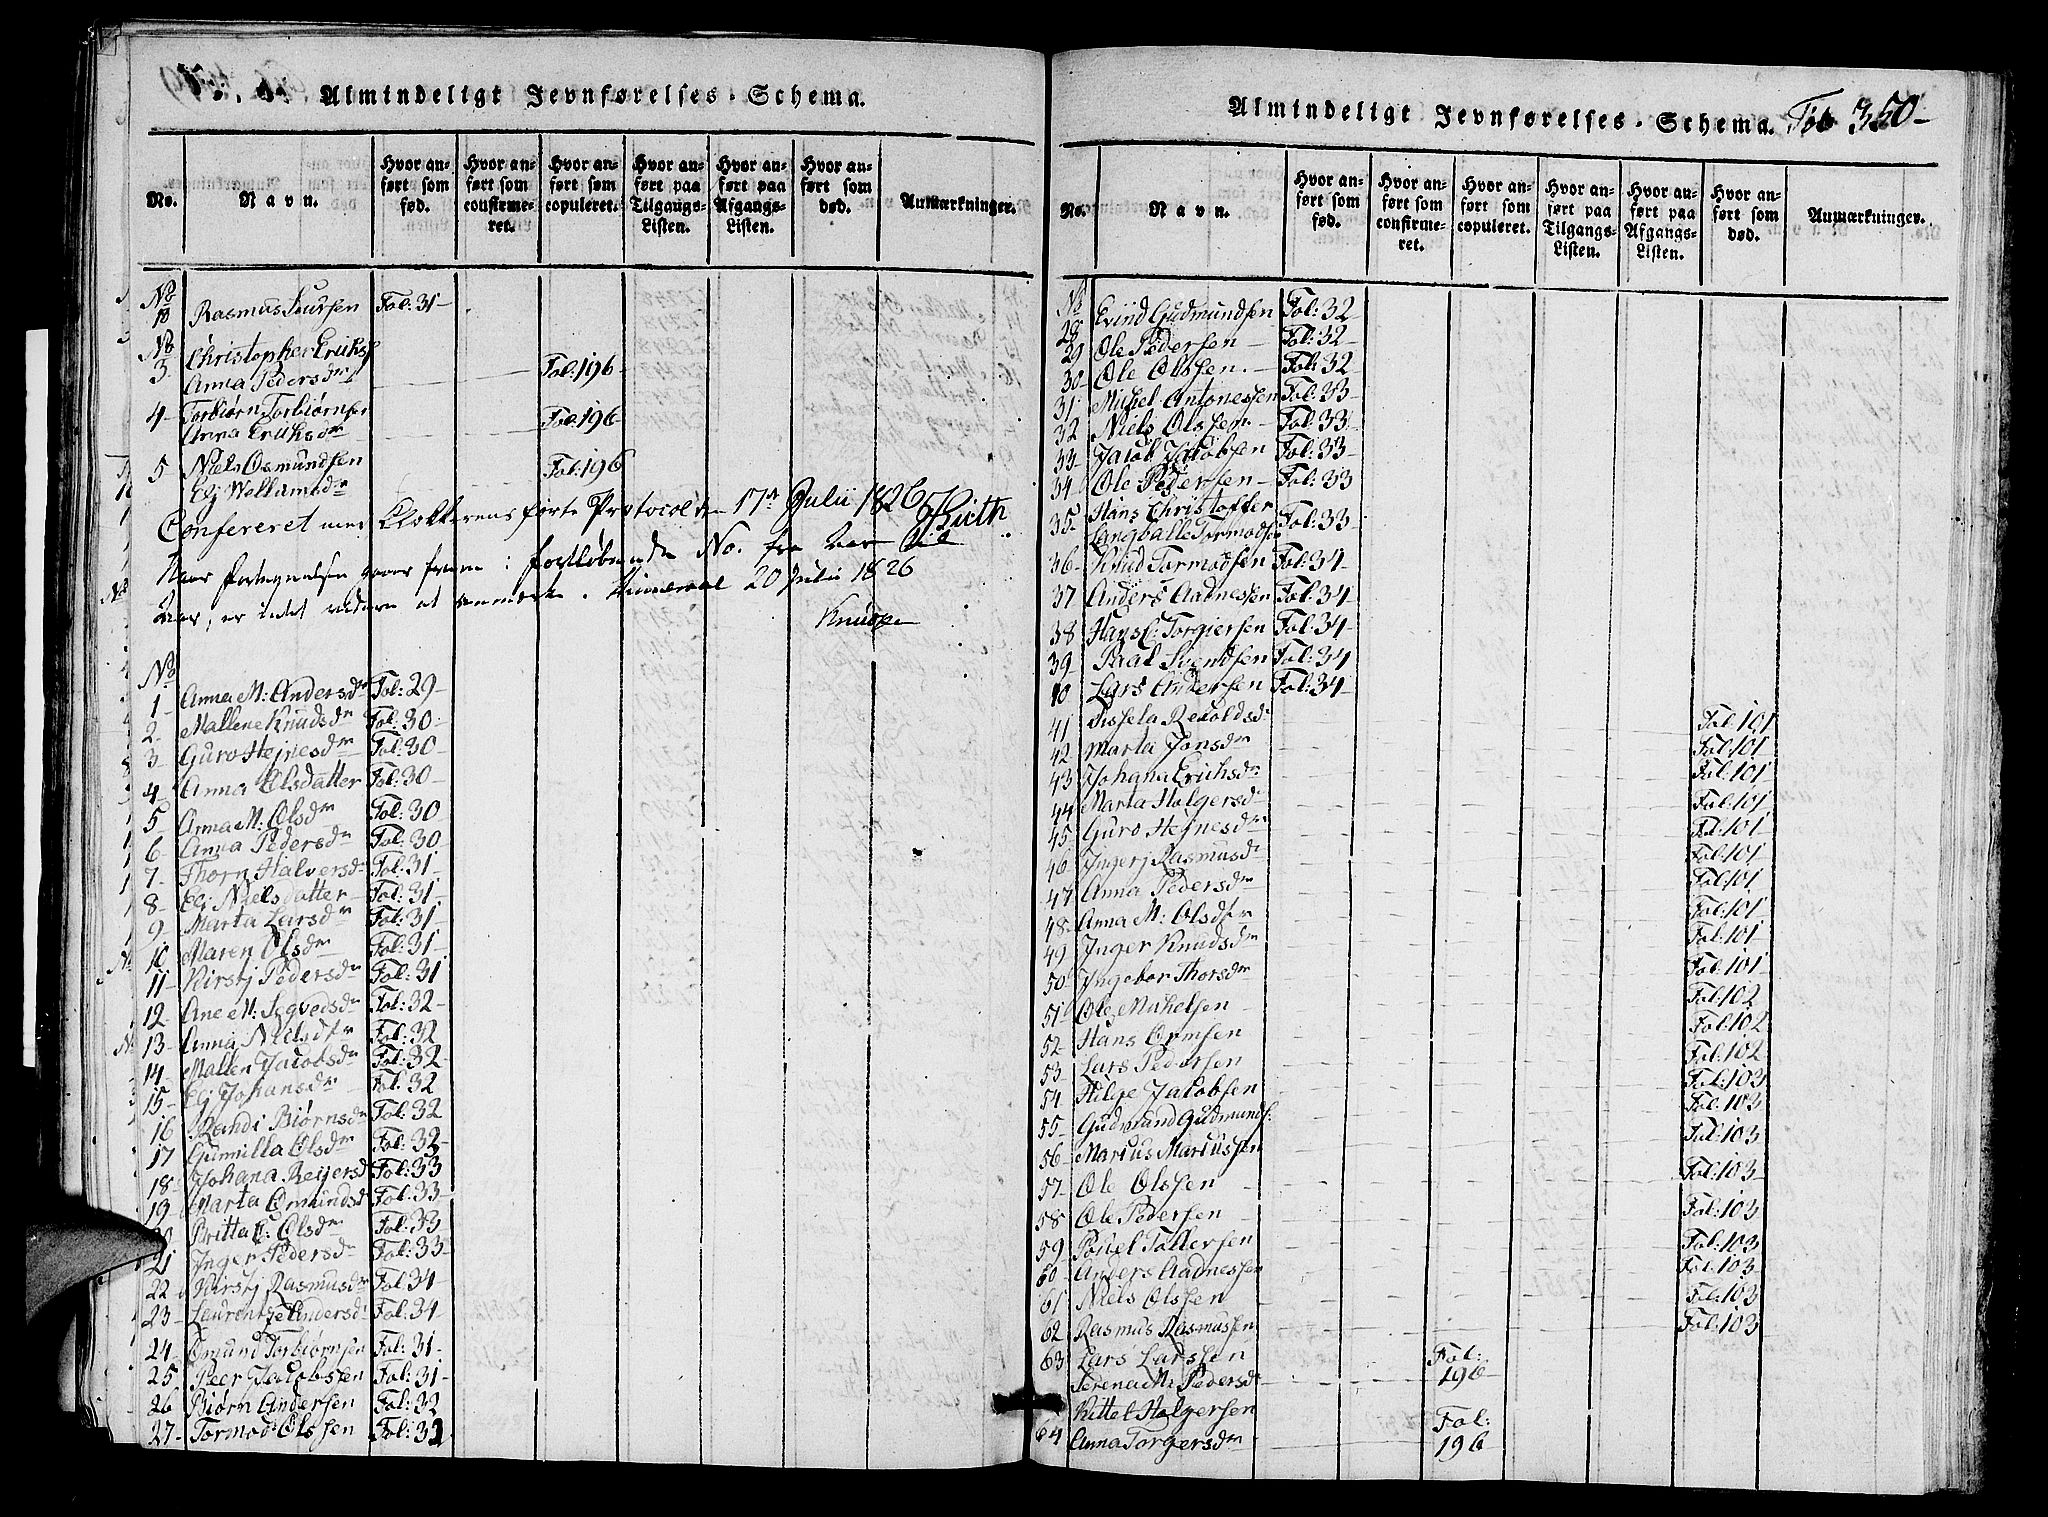 Almindeligt Jevnførelses-Schema.
No.
Navn.
Hvor anført som fød.
Hvor anført som confirmeret.
Hvor anført som copuleret.
Hvor anført paa Tilgangs-Listen.
Hvor anført paa Afgangs-Listen.
Hvor anført som død.
Anmærkninger.
No
10 Rasmus Fol: 31-
No
3- Christopher Eriks: Anna Pedersdr Fol: 196-
4- Torbiørn Torbiørnsen Anna Eriksdr Fol: 196-
5 Niels Osmundsen Elj Fol: 196
Confereret med Klokkerens førte Protocol den 17de Julii 1826 Kieth
fortløbende No. fra
20 Julii 1826
Knudzen
No
1- Anna M: Andersdr Fol: 29-
2- Mallene Knudsdr Fol: 30-
3- Guro Hejnesdr Fol: 30-
4- Anna Olsdatter Fol: 30-
5- Anna M: Olsdr Fol: 30
6- Anna Pedersdr Fol: 30
7- Thorn Halversdr Fol: 31-
8- Elj Nielsdatter Fol: 31-
9- Marta Larsdr Fol: 31-
10- Maren Olsdr Fol: 31-
11- Kirstj Pedersdr Fol: 31
12- Ane M: Sygvedsdr Fol: 32-
13- Anna Nielsdtr Fol: 32
14- Mallen Jacobsdr Fol: 32-
15- Elj Johansdr Fol: 32
16 Randi Biørnsdr Fol: 32
17 Gunnilla Olsdr Fol: 32-
18- Johana Reijersd Fol: 33
19- Marta Omundsd Fol: 33-
20 Britta C: Olsdr Fol: 33
21 Inger Pedersdr Fol: 33-
22 Kirstj Rasmusdr Fol: 34-
23- Laurentze Andersdr Fol: 34
24- Omund Torbiørnsen Fol: 31-
25 Peer Jacobsen Fol: 31-
26 Biørn Andersen Fol: 32
27- Tormod Olssen Fol: 32
Almindeligt Jevnførelses-Schema. Fol 350-
No.
Navn.
Hvor anført som fød.
Hvor anført som confirmeret.
Hvor anført som copuleret.
Hvor anført paa Tilgangs-Listen.
Hvor anført paa Afgangs-Listen.
Hvor anført som død.
Anmærkninger.
No
28 Eviind Gudmundsen Fol: 32
29 Ole Pedersen- Fol: 32-
30- Ole Olssen.- Fol: 32
31- Michel Antonessen Fol: 33
32 Niels Olssen- Fol: 33-
33- Jacob Jacobsen Fol: 33
34- Ole Pedersen- Fol: 33
35- Hans Christoffer Langballe Tormodsen Fol: 33
36- Knud Tormodsen Fol: 34
37 Anders Aadnessen Fol: 34-
38 Hans C: Torgiersen Fol: 34-
39 Paal Svendsen Fol: 34
40 Lars Andersen Fol: 34-
41 Sissela Reioldsdr Fol: 101
42 Marta Jonsdr Fol: 101
43 Johana Eriksdr Fol: 101
44 Marta Holgersdr Fol: 101
45 Guro Hejnesdr Fol: 101
46 Ingerj Rasmusdr Fol: 101
47 Anna Pedersdr Fol: 101
48- Anna M: Olsdtr Fol: 101
49 Inger Knudsdr Fol: 101
50 Ingebor Thorsdr Fol: 101
51- Ole Mikelsen Fol: 102
52- Hans Ormsen Fol: 102
53- Lars Pedersen Fol: 102
54- Helge Jacobsen Fol: 103
55- Gudmund Gudmunds: Fol: 103
56- Marius Mariussen Fol: 103
57- Ole Olssen Fol: 103
58 Ole Pedersen Fol: 103
59 Pouel Tollersen Fol: 103
60- Anders Aadnessen Fol: 103
61 Niels Olssen Fol: 103
62 Rasmus Rasmussen Fol: 103
63 Lars Larssen Serena M: Pedersdr Fol: 196-
64 Kittel Holgersen Anna Torgersdr Fol: 196